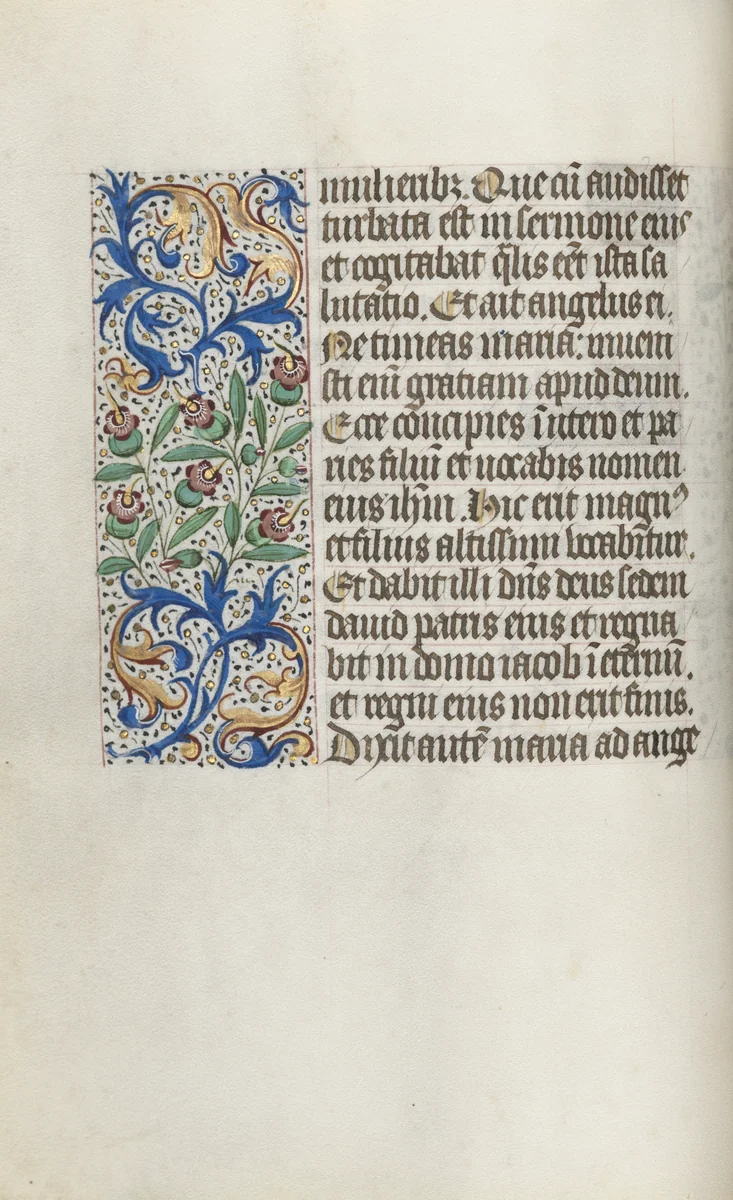 mulieribꝫ. Que cũ audisset
turbata est in sermone eius
et cogitabat q̃lis eẽt ista sa
lutatio. Et ait angelus ei.
Ne timeas maria: inueni
sti eni͂ gratiam apud deum.
Ecce cõncipies ĩ utero et pa
ries filiũ et uocabis nomen
eius ihm̃. Hic erit magnꝰ
et filius altissimi vocabit̃ur.
Et dabit illi dñs deus sedem
dauid patris eius et regna
bit in domo iacob ĩ eternũ.
et regni eius non erit finis.
Dixit autẽ maria ad ange